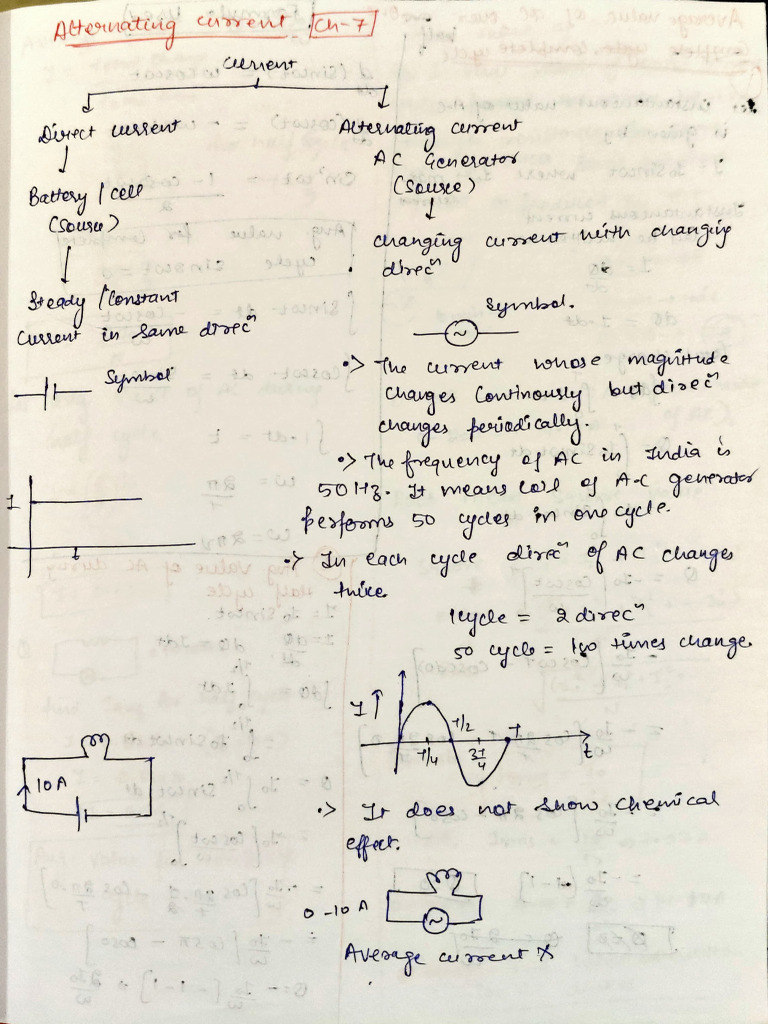 Alternating current. Ch-7
Current
Direct current
Battery / cell
(Source)
Steady / Constant
Current in same direcⁿ
Symbol
I
t
10 A
Alternating current
AC Generator
(Source)
changing current with changing
direcⁿ
Symbol.
~
•> The current whose magnitude
changes Continously but direcⁿ
changes periodically.
•> The frequency of AC in India is
50 Hz. It means coil of A-C generator
performs 50 cycles in one cycle.
•> In each cycle direcⁿ of AC changes
twice.
1 cycle = 2 direcⁿ
50 cycle = 100 times change.
I ↑
T/4
T/2
3T/4
T
t
•> It does not show chemical
effect.
0 -10 A
~
Average current X